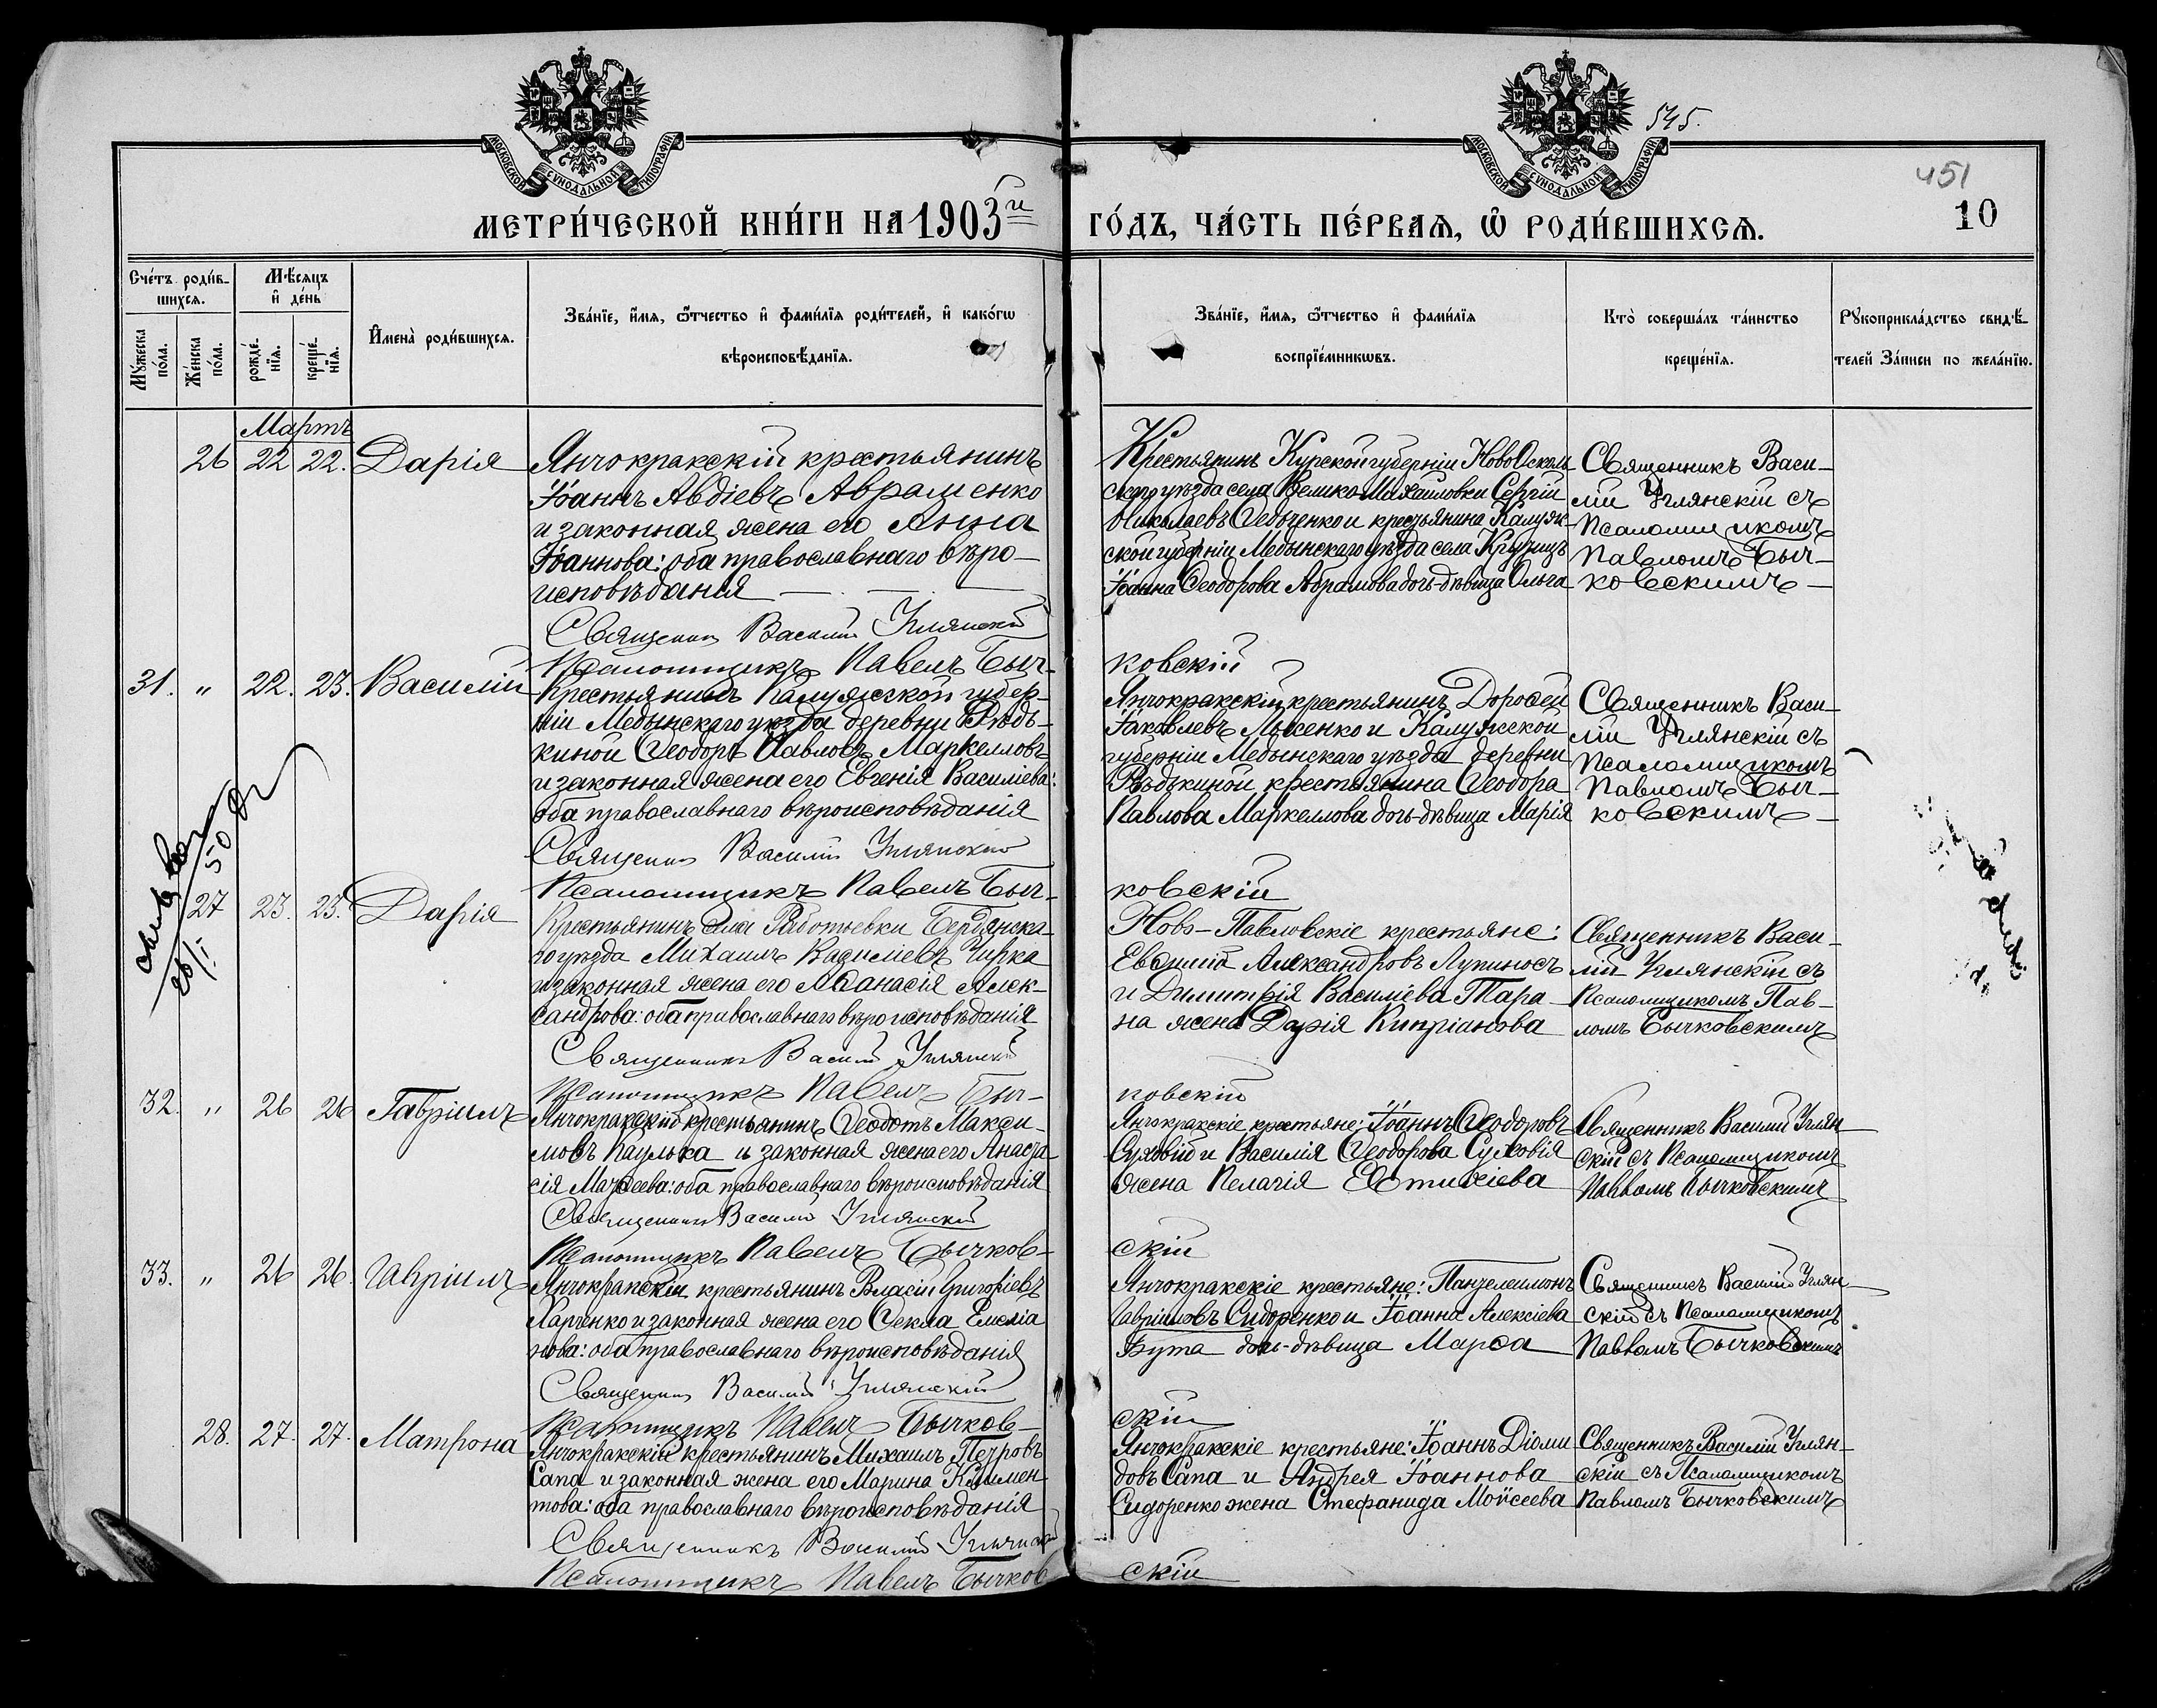 МОСКОВСКОЙ СѴНОДАЛЬНОЙ ТИПОГРАФІИ
МОСКОВСКОЙ СѴНОДАЛЬНОЙ ТИПОГРАФІИ
545.
451
10
МЕТРИ́ЧЕСКОЙ КНИ́ГИ НА 1903й
ГО́ДЪ, ЧА́СТЬ ПЕ́РВАѦ, Ѡ҆ РОДИ́ВШИХСѦ.
Сче́тъ роди́в-
шихсѧ.
Мѣ́сѧцъ
и҆ де́нь
Мꙋ́жеска по́ла.
Же́нска по́ла.
рожде́-нїѧ.
креще́-нїѧ.
И҆мена̀ роди́вшихсѧ.
Зва́нїе, и҆́мѧ, ѻ҆́тчество и҆ фами́лїѧ роди́телей, и҆ како́гѡ
вѣроисповѣ́данїѧ.
Зва́нїе, и҆́мѧ, ѻ҆́тчество и҆ фами́лїѧ
воспрїе́мникѡвъ.
Кто̀ соверша́лъ та́инство
креще́нїѧ.
Рꙋкоприкла́дство свидѣ́-
телей За́писи по жела́нїю.
Мартъ
26 22 22. Дарія
Янчокракскій крестьянинъ
Іоаннъ Авдіевъ Авраменко
и законная жена его Анна
Іоаннова: оба православнаго вѣро-
исповѣданія
Священникъ Василій Углянскій
Псаломщикъ Павелъ Быч-
Крестьянинъ Курской губерніи НовоОсколь-
скаго уѣзда села ВеликоМихайловки Сергій
Николаевъ и крестьянина Калуж-
ской губерніи Медынскаго уѣзда села
Іоанна Ѳеодорова Абрамова дочь-дѣвица Ольга
ковскій
Священникъ Васи-
лій Углянскій съ
Псаломщикомъ
Павломъ Быч-
ковскимъ
31. " 22. 23. Василій
Крестьянинъ Калужской губер-
ніи Медынскаго уѣзда деревни Рѣдь-
киной Ѳеодоръ Павловъ Маркелловъ
и законная жена его Евгенія Василіева:
оба православнаго вѣроисповѣданія
Священникъ Василій Углянскій
Псаломщикъ Павелъ Быч-
Янчокракскій крестьянинъ Дороѳей
Іаковлевъ Лысенко и Калужской
губерніи Медынскаго уѣзда деревни
Рѣдькиной крестьянина Ѳеодора
Павлова Маркеллова дочь-дѣвица Марія
ковскій
Священникъ Васи-
лій Углянскій съ
Псаломщикомъ
Павломъ Быч-
ковскимъ
27 23. 25. Дарія
Крестьянинъ села Бердянска-
го уѣзда Михаилъ Василіевъ Чирка
и законная жена его Аѳанасія Алек-
сандрова: оба православнаго вѣроисповѣданія
Священникъ Василій Углянскій
Псаломщикъ Павелъ Быч-
Ново-Павловскіе крестьяне:
Евѳимій Александровъ Лупиносъ
и Димитрія Василіева Тара-
на жена Дарія Кипріанова
ковскій
Священникъ Васи-
лій Углянскій съ
Псаломщикомъ Пав-
ломъ Бычковскимъ
32. " 26 26 Гавріилъ
Янчокракскій крестьянинъ Ѳеодотъ Макси-
мовъ и законная жена его Анаста-
сія Матѳеева: оба православнаго вѣроисповѣданія
Священникъ Василій Углянскій
Псаломщикъ Павелъ Бычков-
Янчокракскіе крестьяне: Іоаннъ Ѳеодоровъ
Суховій и Василія Ѳеодорова Суховія
жена Пелагія Евтихіева
скій
Священникъ Василій Углян-
скій съ Псаломщикомъ
Павломъ Бычковскимъ
33. " 26 26. Гавріилъ
Янчокракскій крестьянинъ Власій Григоріевъ
Харченко и законная жена его Ѳекла Емеліа
нова: оба православнаго вѣроисповѣданія
Священникъ Василій Углянскій
Псаломщикъ Павелъ Бычков-
Янчокракскіе крестьяне: Пантелеимонъ
Гавріиловъ Сидоренко и Іоанна Алексіева
Бута дочь-дѣвица Марѳа
скій
Священникъ Василій Углян-
скій съ Псаломщикомъ
Павломъ Бычковскимъ
28. 27. 27. Матрона
Янчокракскій крестьянинъ Михаилъ Петровъ
Сапа и законная жена его Марина Климен-
това: оба православнаго вѣроисповѣданія
Священникъ Василій Углянскій
Псаломщикъ Павелъ Бычков
Янчокракскіе крестьяне: Іоаннъ Діоми
довъ Сапа и Андрея Іоаннова
Сидоренко жена Стефанида Моѵсеева
скій
Священникъ Василій Углян-
скій съ Псаломщикомъ
Павломъ Бычковскимъ